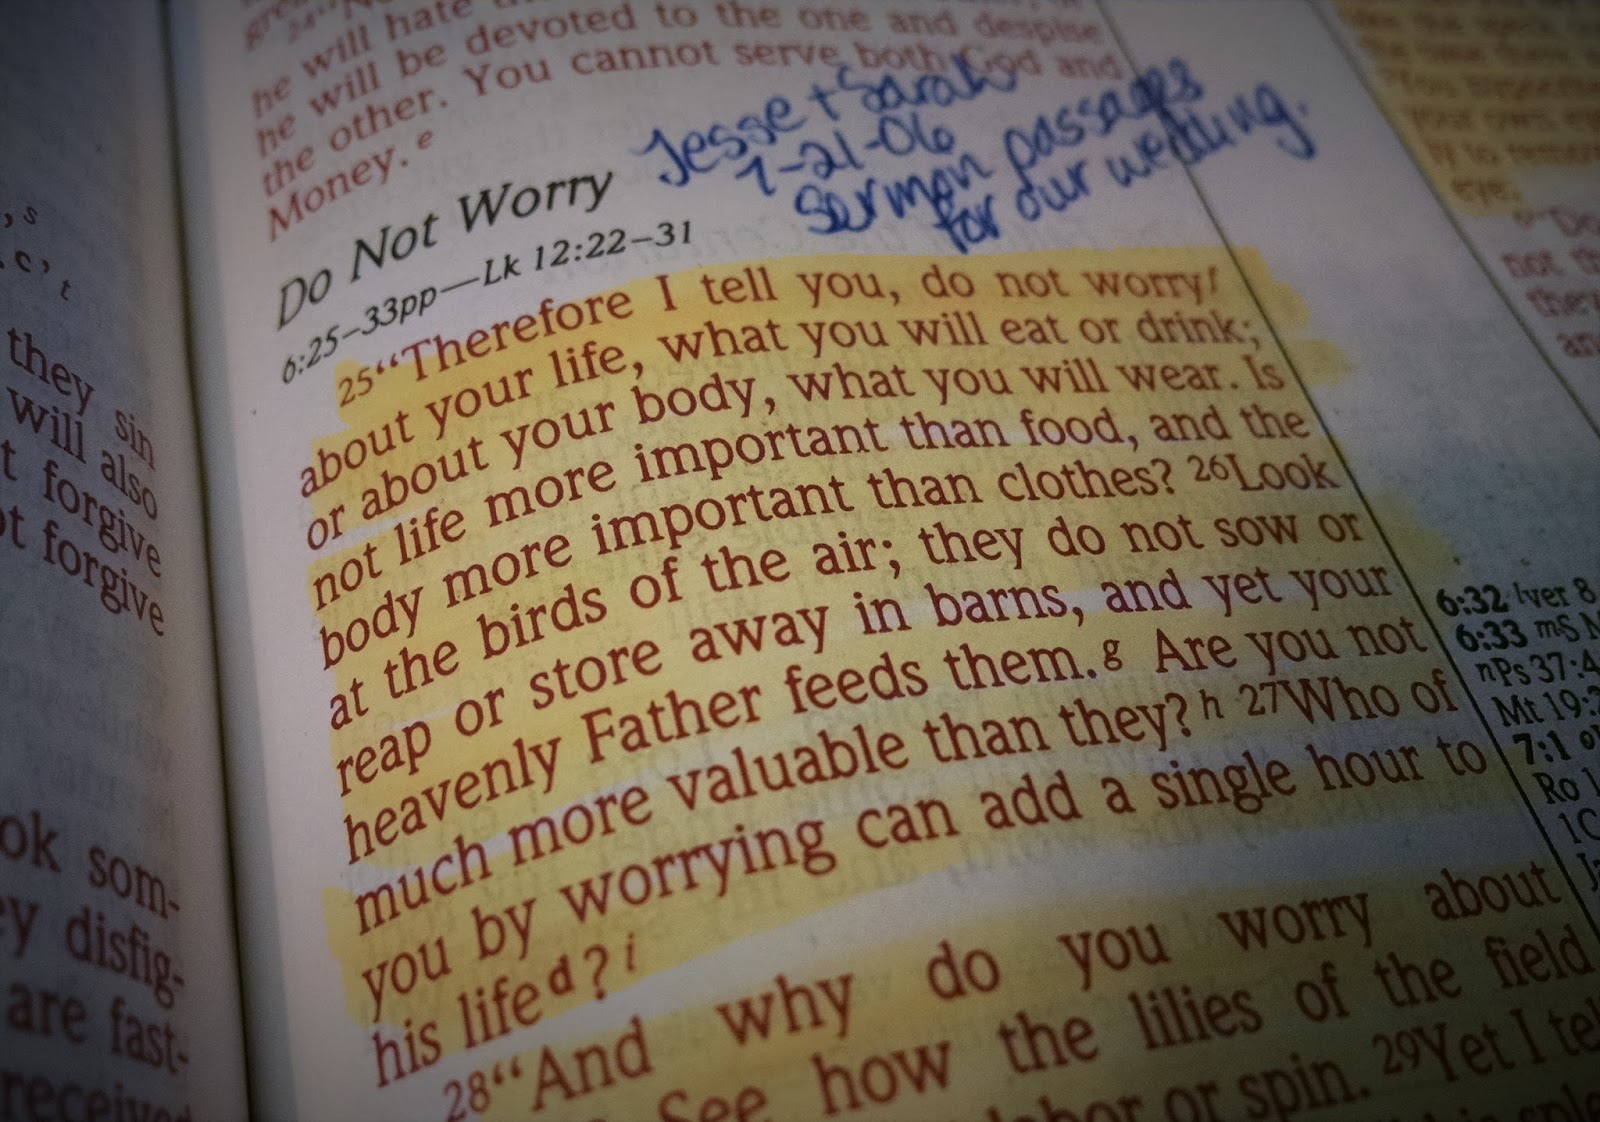 24
he will hate
he will be devoted to the one and despise
the other. You cannot serve both God and
Money. e
Jesse + Sarah
7-21-06
Sermon passages
for our wedding.
Do Not Worry
6:25–33pp—Lk 12:22–31
25“Therefore I tell you, do not worry f
about your life, what you will eat or drink;
or about your body, what you will wear. Is
not life more important than food, and the
body more important than clothes? 26Look
at the birds of the air; they do not sow or
reap or store away in barns, and yet your
heavenly Father feeds them. g Are you not
much more valuable than they? h 27Who of
you by worrying can add a single hour to
his life d? i
28“And why do you worry about
See how the lilies of the field
labor or spin. 29Yet I tel
, s
. c’ t
they sin
will also
t forgive
ot forgive
ok som-
ey disfig-
are fast-
received
6:32 lver 8
6:33 mS
nPs 37:4
Mt 19:2
7:1
Ro 1
1C
eye.
“Do
not th
they
an